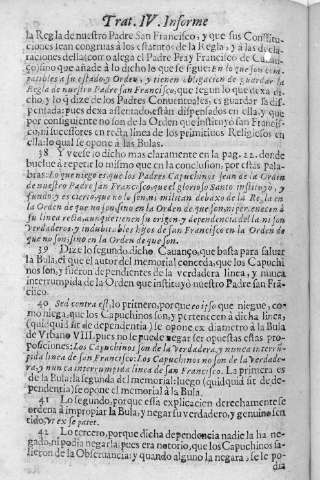 Trat. IV. Informe
la Regla de nuestro Padre San Francisco, y que sus Constitu-
ciones sean congruas à los estatutos de la Regla, y à las decla-
raciones della, como alega el Padre Fray Francisco de Cauan-
ço, sino que añade à lo dicho lo que se sigue: En lo que son com-
patibles a su estado, y Orden, y tienen obligacion de guardar la
Regla de nuestro Padre San Francisco, que segun lo que dexa di-
cho, y lo q̃ dize de los Padres Conuentuales, es guardar la dis-
pensada: pues dexa assentado, están dispensados en ella, y que
por consiguiente no son de la Orden que instituyò san Francis-
co, ni sucessores en recta linea de los primitiuos Religiosos en
ella: lo qual se opone à las Bulas.
38 Y veese lo dicho mas claramente en la pag. 22. donde
buelue à repetir lo mismo que en la conclusion, por estas pala-
bras: Lo que niego es, que los Padres Capuchinos sean de la Orden
de nuestro Padre San Francisco, que el glorioso Santo instituyò, y
fundò, y es cierto, que no lo son, ni militan debaxo de la Regla en
la Orden de que no son, sino en la Orden de que son, ni pertenecen à
su linea recta, aunque tienen su origen, y dependencia della, ni son
verdaderos, y indubitables hijos de San Francisco en la Orden de
que no son, sino en la Orden de que son.
39 Dize lo segundo dicho Cauanço, que basta para saluar
la Bula, el que el autor del memorial conceda, que los Capuchi-
nos son, y fueron dependientes de la verdadera linea, y nunca
interrumpida de la Orden que instituyò nuestro Padre san Frã-
cisco.
40 Sed contra est, lo primero, porque eo ipso que niegue, co-
mo niega, que los Capuchinos son, y pertenecen à dicha linea,
(quidquid sit de dependentia) se opone ex diametro à la Bula
de Vrbano VIII. pues no se puede negar ser opuestas estas pro-
posiciones: Los Capuchinos son de la verdadera, y nunca interrũ-
pida linea de san Francisco: Los Capuchinos no son de la verdade-
ra, y nunca interrumpida linea de san Francisco. La primera es
de la Bula: la segunda del memorial: luego (quidquid sit de de-
pendentia) se opone el memorial à la Bula.
41 Lo segundo, porque essa explicacion derechamente se
ordena à impropiar la Bula, y negar su verdadero, y genuino sen-
tido, vt ex se patet.
42 Lo tercero, porque dicha dependencia nadie la ha ne-
gado, ni podia negarla: pues era notorio, que los Capuchinos sa-
lieron de la Obseruancia: y quando alguno la negara, se le po-
dia